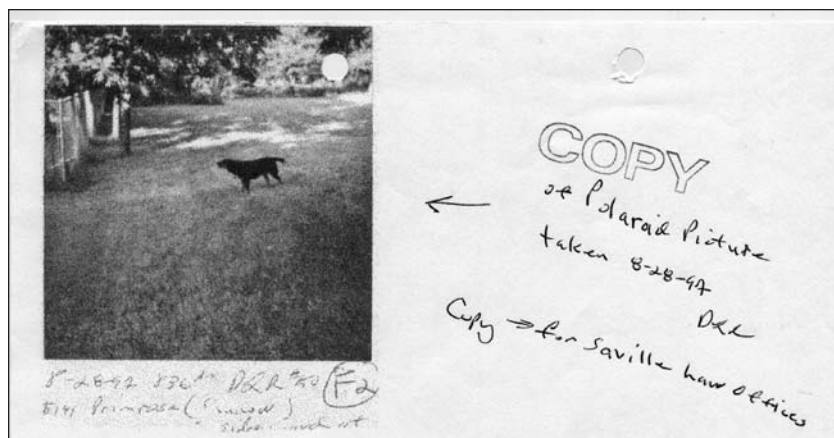 COPY
of Polaroid Picture
taken 8-28-97
DRR
Copy → for Saville Law offices
8-28-97 836 AM DRR #50 F2
Primrose (
side